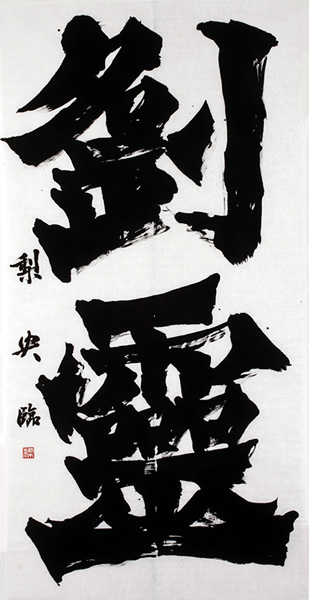 劉靈
梨央臨